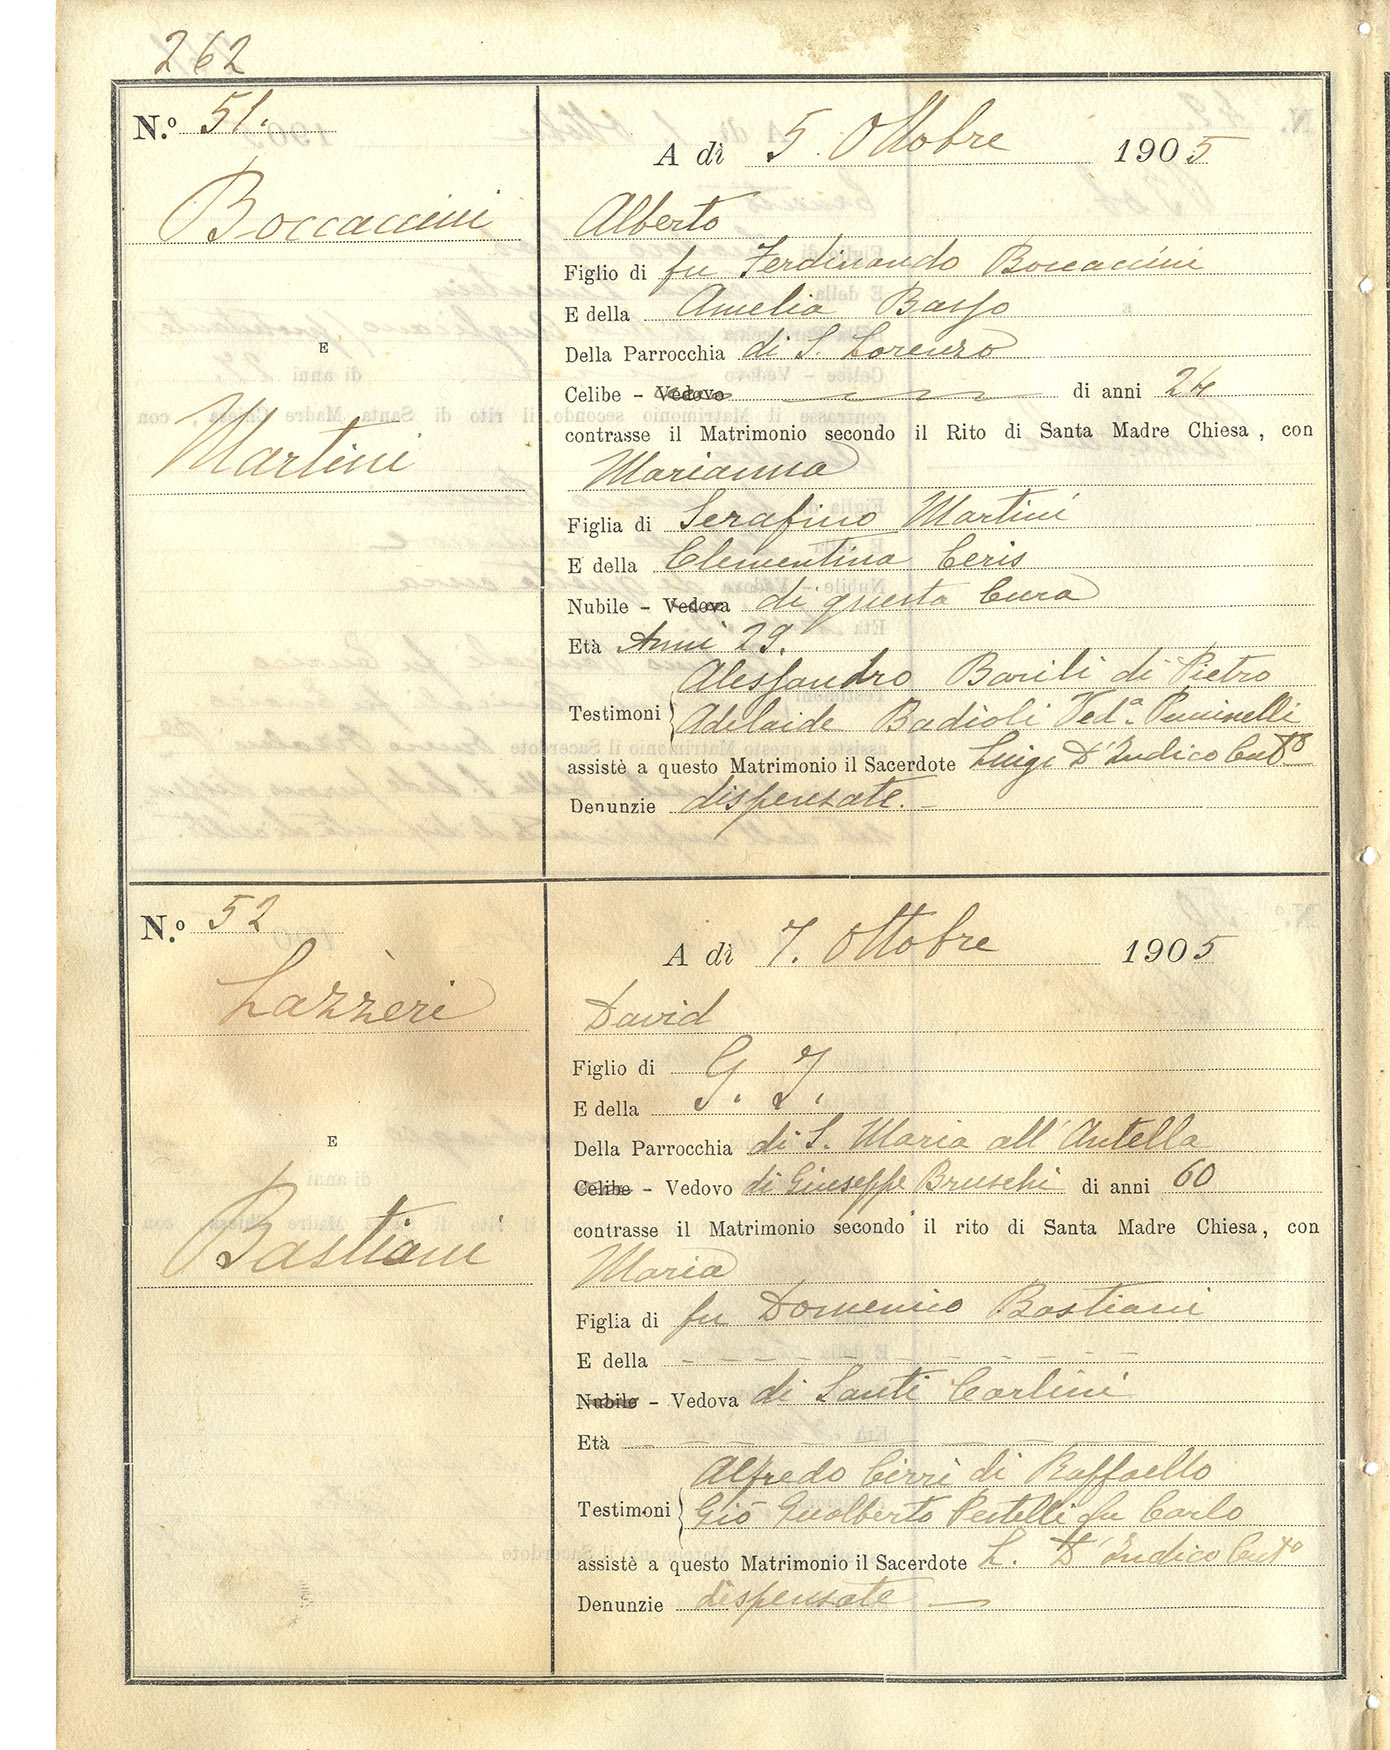 262
N.º 51.
Boccaccini
E
Martini
A dì 5. Ottobre 1905
Alberto
Figlio di fu Ferdinando Boccaccini
E della Amelia Basso
Della Parrocchia di S. Lorenzo
Celibe - Vedovo di anni 24
contrasse il Matrimonio secondo il Rito di Santa Madre Chiesa, con
Marianna
Figlia di Serafino Martini
E della Clementina Ceris
Nubile - Vedova di questa Cura
Età Anni 29.
Alessandro Barili di Pietro
Testimoni Adelaide Badioli Ved.ª
assistè a questo Matrimonio il Sacerdote Luigi D'Indico
Denunzie dispensate.
N.º 52
Lazzèri
E
Bastiani
A dì 7. Ottobre 1905
David
Figlio di G.
E della
Della Parrocchia di S. Maria all'Antella
Celibe - Vedovo di Giuseppe Bruschi di anni 60
contrasse il Matrimonio secondo il rito di Santa Madre Chiesa, con
Maria
Figlia di fu Domenico Bastiani
E della
Nubile - Vedova di Santi Carlini
Età
Alfredo Cirri di Raffaello
Testimoni Gio Gualberto Pestelli fu Carlo
assistè a questo Matrimonio il Sacerdote L. D'Indico
Denunzie dispensate